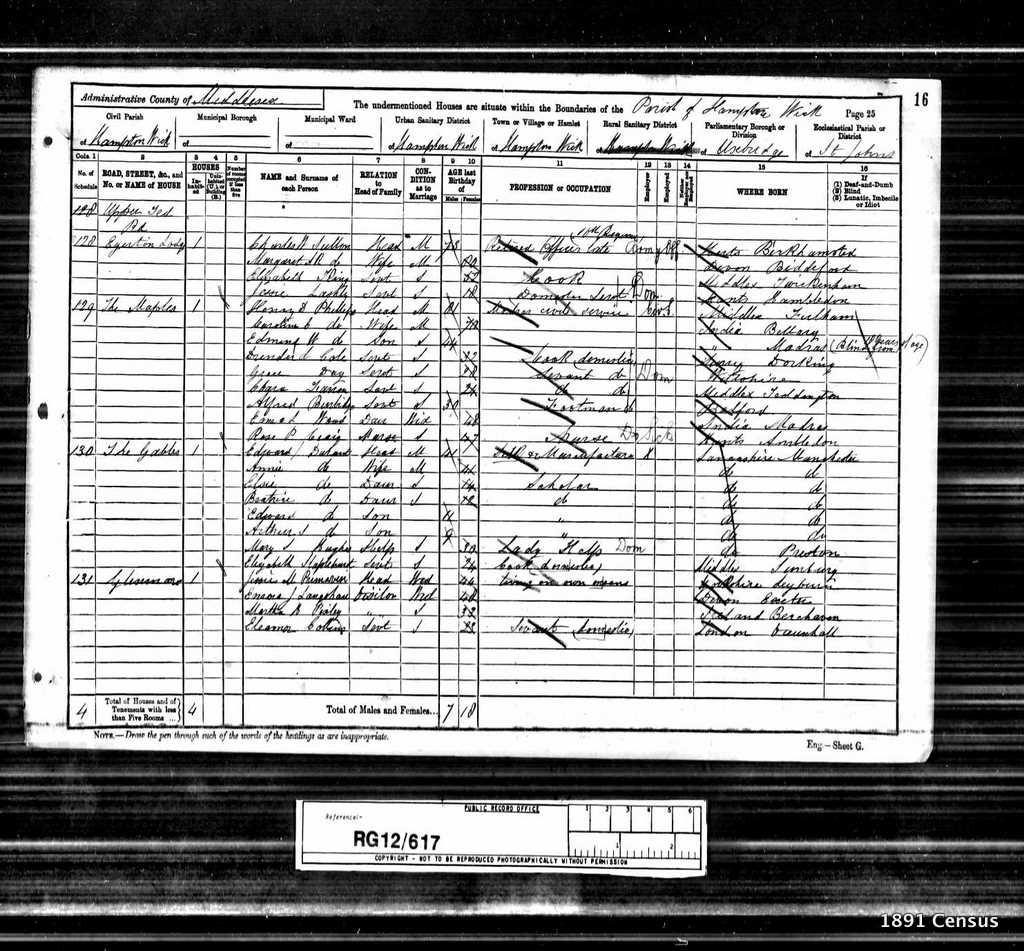 16
Administrative County of Middlesex
The undermentioned Houses are situate within the Boundaries of the Parish of Hampton Wick
Page 25
Civil Parish of Hampton Wick
Municipal Borough of
Municipal Ward of
Urban Sanitary District of Hampton Wick
Town or Village or Hamlet of Hampton Wick
Rural Sanitary District of
Parliamentary Borough or Division of Uxbridge
Ecclesiastical Parish or District of St Johns
Cols. 1 2 3 4 5 6 7 8 9 10 11 12 13 14 15 16
No. of Schedule
ROAD, STREET, &c., and No. or NAME of HOUSE
HOUSES
Inhabited
Uninhabited (U.), or Building (B.)
Number of rooms occupied if less than five
NAME and Surname of each Person
RELATION to Head of Family
CONDITION as to Marriage
AGE last Birthday of
Males Females
PROFESSION or OCCUPATION
Employer
Employed
WHERE BORN
If
(1) Deaf-and-Dumb
(2) Blind
(3) Lunatic, Imbecile or Idiot
128 Upper Ted Rd
128 Egerton Lodge 1 Charles W Sutton Head M 73 Retired Officer late Herts Berkhamsted
Margaret do Wife M Devon Biddeford
Elizabeth King Servt S Cook Middlex Twickenham
Jessie Servt S 18 Domestic Servt Dom Hants Hambledon
129 The Maples 1 Henry D Phillips Head M 81 Madras civil service Middlex Fulham
Caroline do Wife M India Bellary
Edmund W do Son 44 " Madras (Blind from years of age)
Cole Servt S 32 Cook domestic Surrey Dorking
Grace Day Servt S 28 Servant do Dom Wiltshire
Clara Servt S 24 do do Middlex Teddington
Alfred Servt S 30 Footman do
Emma Wood Daur Wid 48 India Madras
Rose P Craig Nurse S 47 Nurse Do Sick Hants
130 The Gables 1 Edward Head M 41 Manufacturer X Lancashire Manchester
Annie do Wife M 41 do do
Elsie do Daur S 14 Scholar do do
Beatrice do Daur S 12 do do do
Edward do Son 11 " do do
Arthur S do Son 9 " do do
Mary S Hughes Help S 30 Lady Help Dom do Preston
Elizabeth Staplehurst Servt S 24 Cook domestic Middlex Sunbury
131 Glenmore 1 Jessie M Head Wid 44 living on own means Yorkshire
Emma Visitor Wid 48 Devon Exeter
Martha B " S 32 Ireland Berehaven
Eleanor Collins Servt S 23 Servant domestic London Vauxhall
4
Total of Houses and of Tenements with less than Five Rooms
4
Total of Males and Females... 7 18
NOTE.—Draw the pen through such of the words of the headings as are inappropriate.
Eng.—Sheet G.
PUBLIC RECORD OFFICE
1 2 3 4 5 6
Reference:-
RG12/617
1 2
COPYRIGHT - NOT TO BE REPRODUCED PHOTOGRAPHICALLY WITHOUT PERMISSION
1891 Census